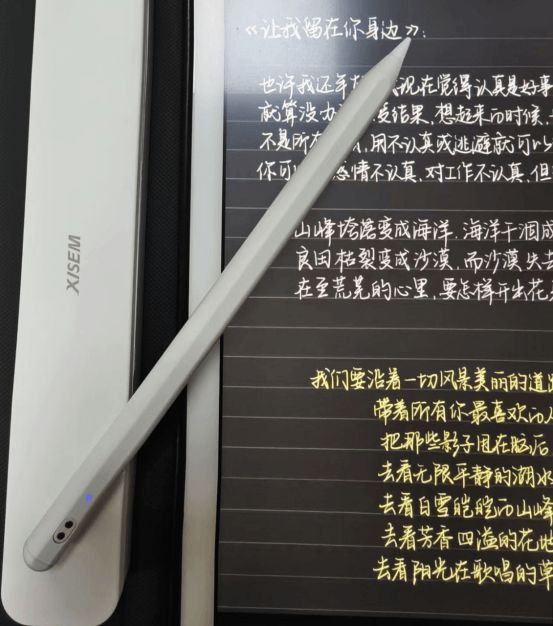 《让我留在你身边》:
也许我还年 现在觉得认真是好事
就算没办 结果,想起来的时候,
不是所 用不认真或逃避就可以
你可 感情不认真,对工作不认真,但
山峰垮落变成海洋,海洋干涸成
良田枯裂变成沙漠,而沙漠失去
在至荒芜的心里,要怎样开出花
我们要沿着一切风景美丽的道路
带着所有你最喜欢的
把那些影子甩在脑后
去看无限平静的湖水
去看白雪皑皑的山峰
去看芳香四溢的花
去看阳光在歌唱的草
XISEM